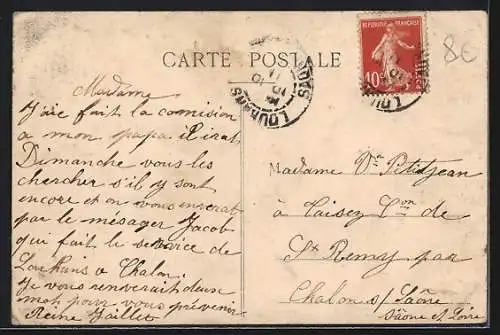 CARTE POSTALE
RÉPUBLIQUE FRANÇAISE
10
8€
LOUHANS
Madame
J'aie fait la comision
a mon papa il irat
Dimanche vous les
chercher s'il y sont
encore et on vous enverat
par le mesager Jacob
qui fait le service de
Louhans a Chalon.
Je vous renverait deux
mot pour vous prévenir
Reine Jaillet
Madame Vve Petitjean
à Taisez Con de
St Remy par
Chalon s/ Saône
Saône et Loire